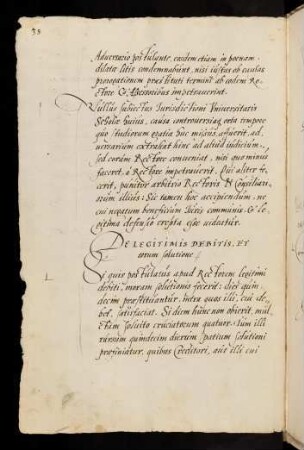 33
Adversario postulante, eundem etiam in poenam
dilatae litis condemnabunt, nisi iustas ob causas
prorogationem praestituti termini ab eodem Re-
ctore & Assessoribus impetraverint.
Nullus subiectus Jurisdictioni Universitatis
Scholae huius, causa controversiaq. orta tempore
quo studiorum gratia huc missus affuerit, ad-
versarium extrahat hinc ad aliud iudicium,
sed coram Rectore conveniat, nisi quo minus
faceret, a Rectore impetraverit. Qui aliter fe-
cerit, punitur arbitrio Rectoris & Consiliari-
orum illius: Sic tamen hoc accipiendum, ne
cui negatum beneficium Iuris communis, & le-
gitima defensio erepta esse videatur.
DE LEGITIMIS DEBITIS, ET
eorum solutione
Si quis postulatus apud Rectorem legitimi
debiti, moram solutionis fecerit: dies quin-
decim praestituantur, intra quos illi, cui de-
bet, satisfaciat. Si diem hunc non obierit, mul-
ctam solvito cruciatorum quatuor. Tum illi
rursum quindecim dierum spatium solutioni
praefiniatur, quibus Creditori, aut illi cui